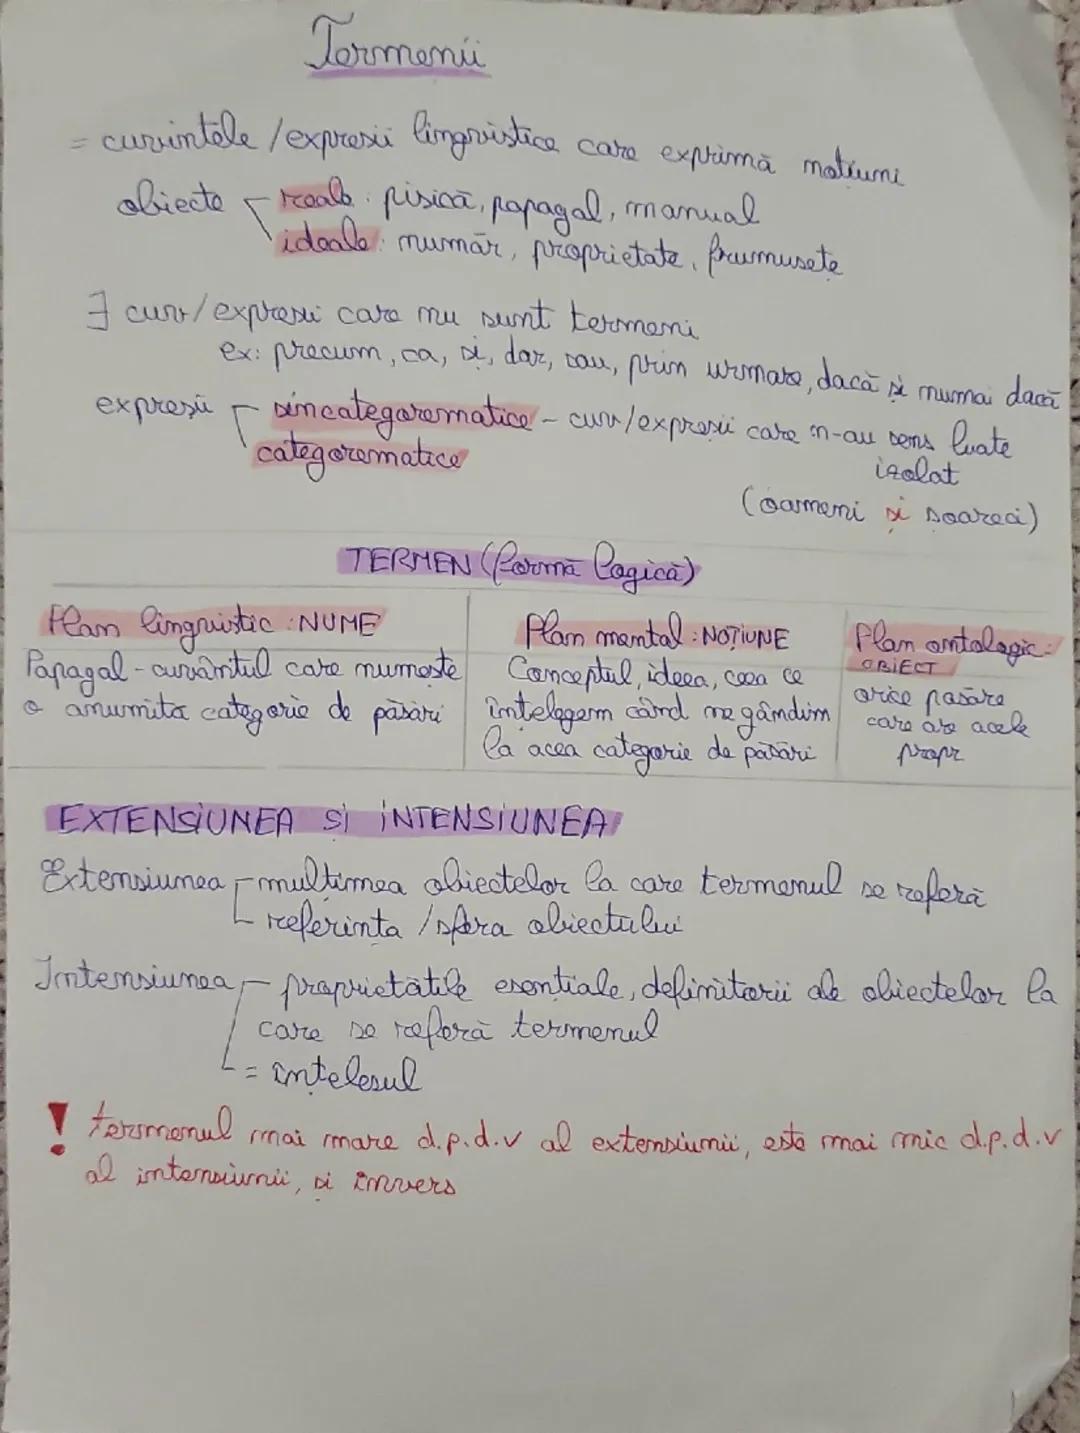 Termenii
= cuvintele / expresii lingvistice care exprimă noțiuni
obiecte reale: pisică, papagal, manual
ideale: număr, proprietate, frumusețe
∃ cuv/expresii care nu sunt termeni
ex: precum, ca, și, dar, sau, prin urmare, dacă și numai dacă
expresii sincategorematice - cuv/expresii care n-au sens luate
categorematice izolat
(oameni și șoareci)
TERMEN (formă logică)
Plan lingvistic: NUME
Papagal - cuvântul care numește
o anumită categorie de păsări
Plan mental: NOȚIUNE
Conceptul, ideea, ceea ce
înțelegem când ne gândim
la acea categorie de păsări
Plan ontologic:
OBIECT
orice pasăre
care are acele
propr
EXTENSIUNEA ȘI INTENSIUNEA
Extensiunea mulțimea obiectelor la care termenul se referă
referința / sfera obiectului
Intensiunea proprietățile esențiale, definitorii ale obiectelor la
care se referă termenul
= înțelesul
! termenul mai mare d.p.d.v al extensiunii, este mai mic d.p.d.v
al intensiunii, și invers